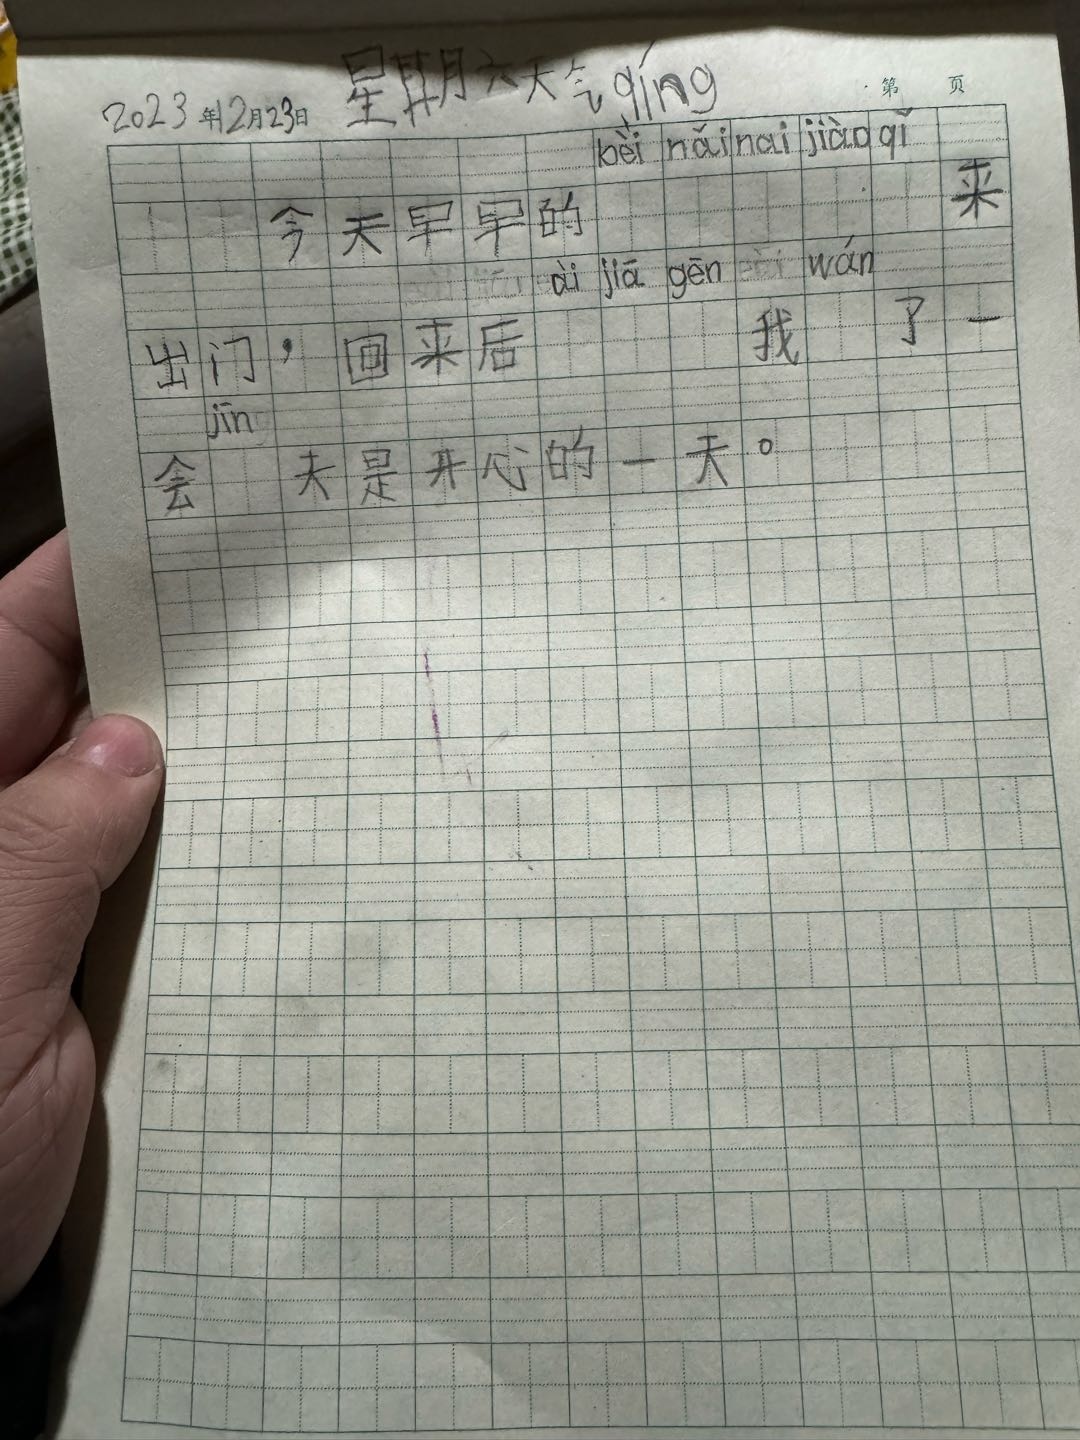 星期六天气qíng
第 页
2023年12月23日
bèi nǎi nai jiào qǐ
今天早早的 来
ài jiā gēn wán
出门，回来后 我 了一
jīn
会 天是开心的一天。